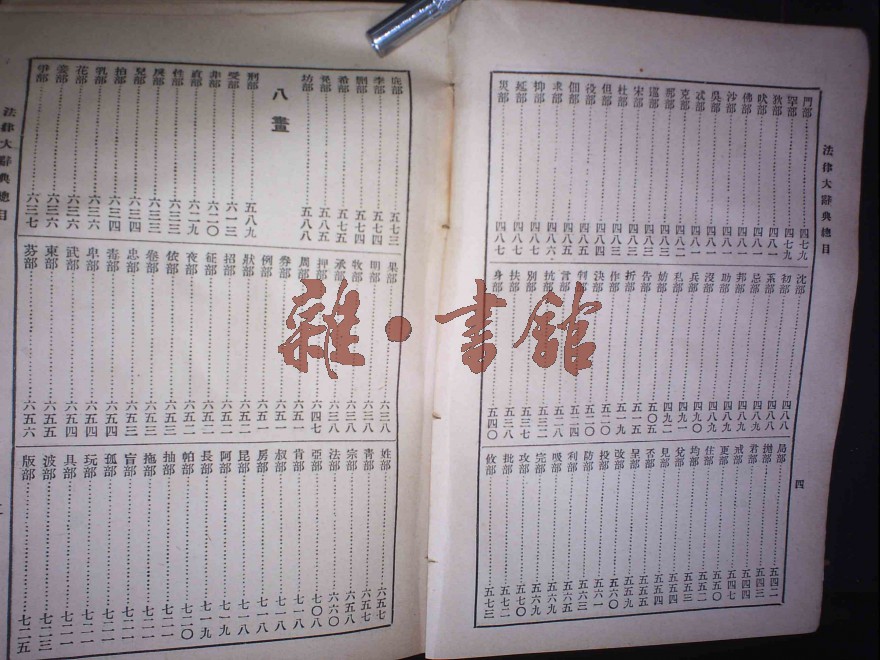 法律大辭典總目
四
門部 四七九
罕部 四七九
狄部 四八一
吠部 四八一
佛部 四八一
沙部 四八一
吳部 四八一
忒部 四八一
克部 四八二
那部 四八二
巡部 四八三
宋部 四八三
杜部 四八三
但部 四八四
没部
佃部 四八五
求部 四八六
抑部 四八七
延部 四八七
災部 四八七
沈部 四八八
初部 四八八
系部 四八八
忌部 四八八
邦部 四八九
助部 四八九
沒部 四八九
兵部 四八九
私部 四九一
妨部 四九二
告部 五〇五
折部 五一五
作部 五一九
決部 五二〇
判部 五二〇
言部 五二四
抗部 五二八
別部 五三二
扶部 五三七
身部 五四〇
局部 五四二
拋部 五四三
君部 五四五
戒部 五四七
更部 五五〇
住部 五五二
均部 五五三
兌部 五五四
見部 五五四
否部 五五五
呈部 五五九
改部 五六〇
投部 五六一
防部 五六三
利部 五六五
吸部 五六六
完部 五六九
攻部 五七〇
批部 五七二
攸部 五七三
庇部 五七三
李部 五七四
劉部 五七四
希部 五七五
免部 五八五
坊部 五八八
八畫
刑部 五八九
受部 六一三
非部 六二〇
直部 六二九
性部 六三三
戾部 六三三
兒部 六三四
拍部 六三四
乳部 六三六
花部 六三六
妾部 六三六
爭部 六三七
果部 六三八
明部 六三八
牧部 六三八
承部 六三八
押部 六四七
周部 六五一
券部 六五一
例部 六五一
狀部 六五二
招部 六五二
征部 六五二
夜部 六五二
依部 六五三
卷部 六五三
忠部 六五三
毒部 六五四
卑部 六五四
武部 六五四
東部 六五五
芬部 六五六
姓部 六五七
青部 六五七
宗部 六五八
法部 六六〇
亞部 七〇八
肯部 七一八
叔部 七一八
房部 七一八
昆部 七一九
阿部 七一九
長部 七一九
帕部 七二〇
抽部 七二一
拖部 七二一
盲部 七二一
孤部 七二一
玩部 七二一
具部 七二一
波部 七二二
版部 七二五
法律大辭典總目
雜·書館